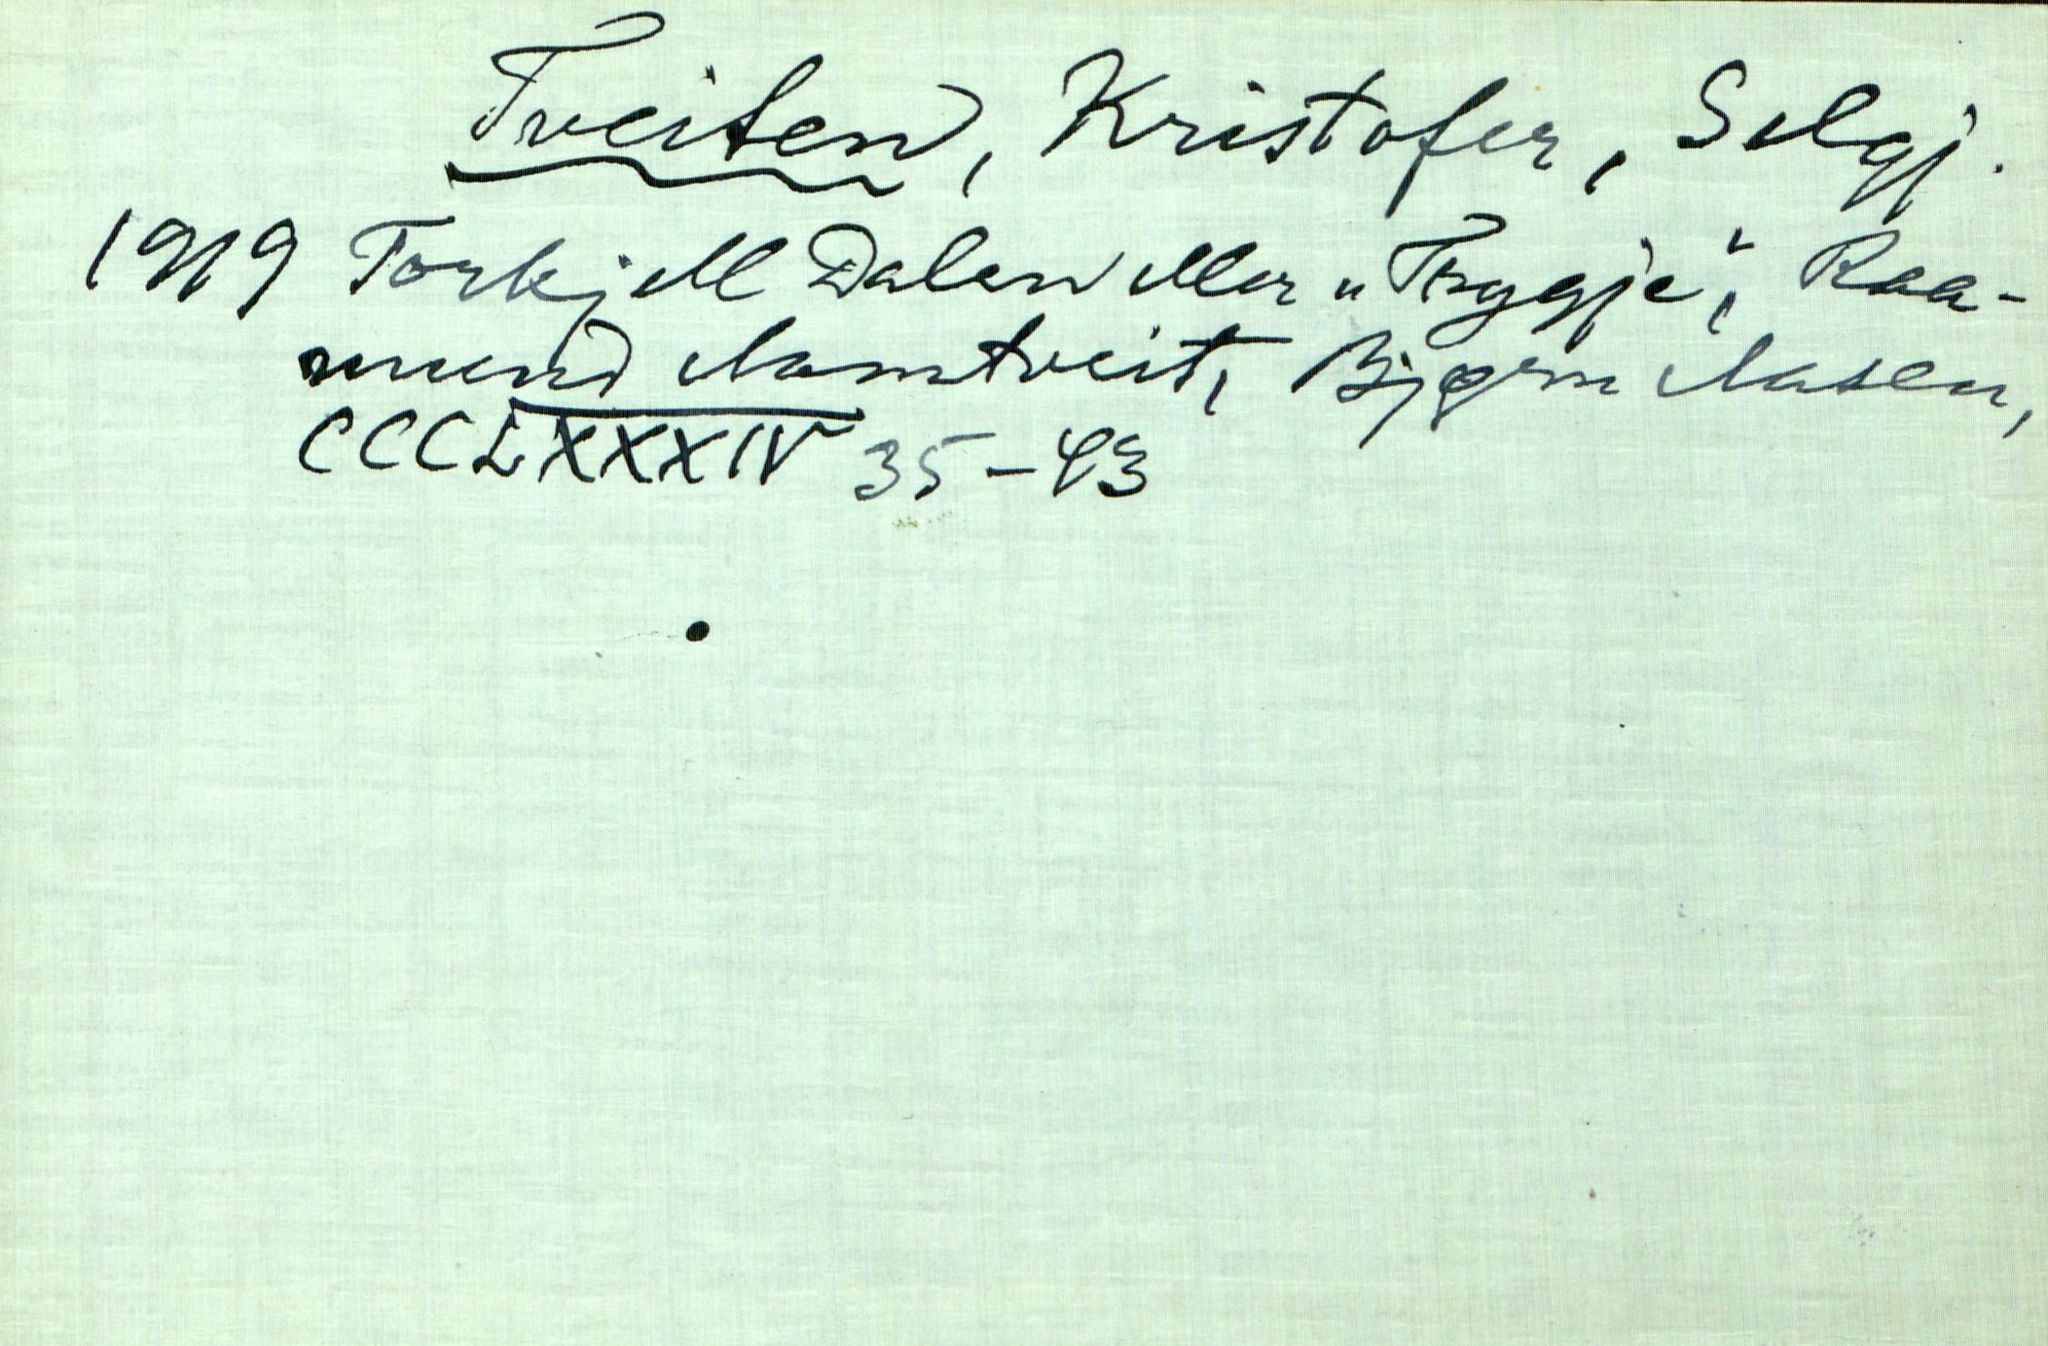 Tveiten, Kristofer, Selgj.
1919 Torkjell Dalen eller „Tryggje“, Raa-
mund Aamtveit, Bjørn Aasen,
CCCLXXXIV 35-43